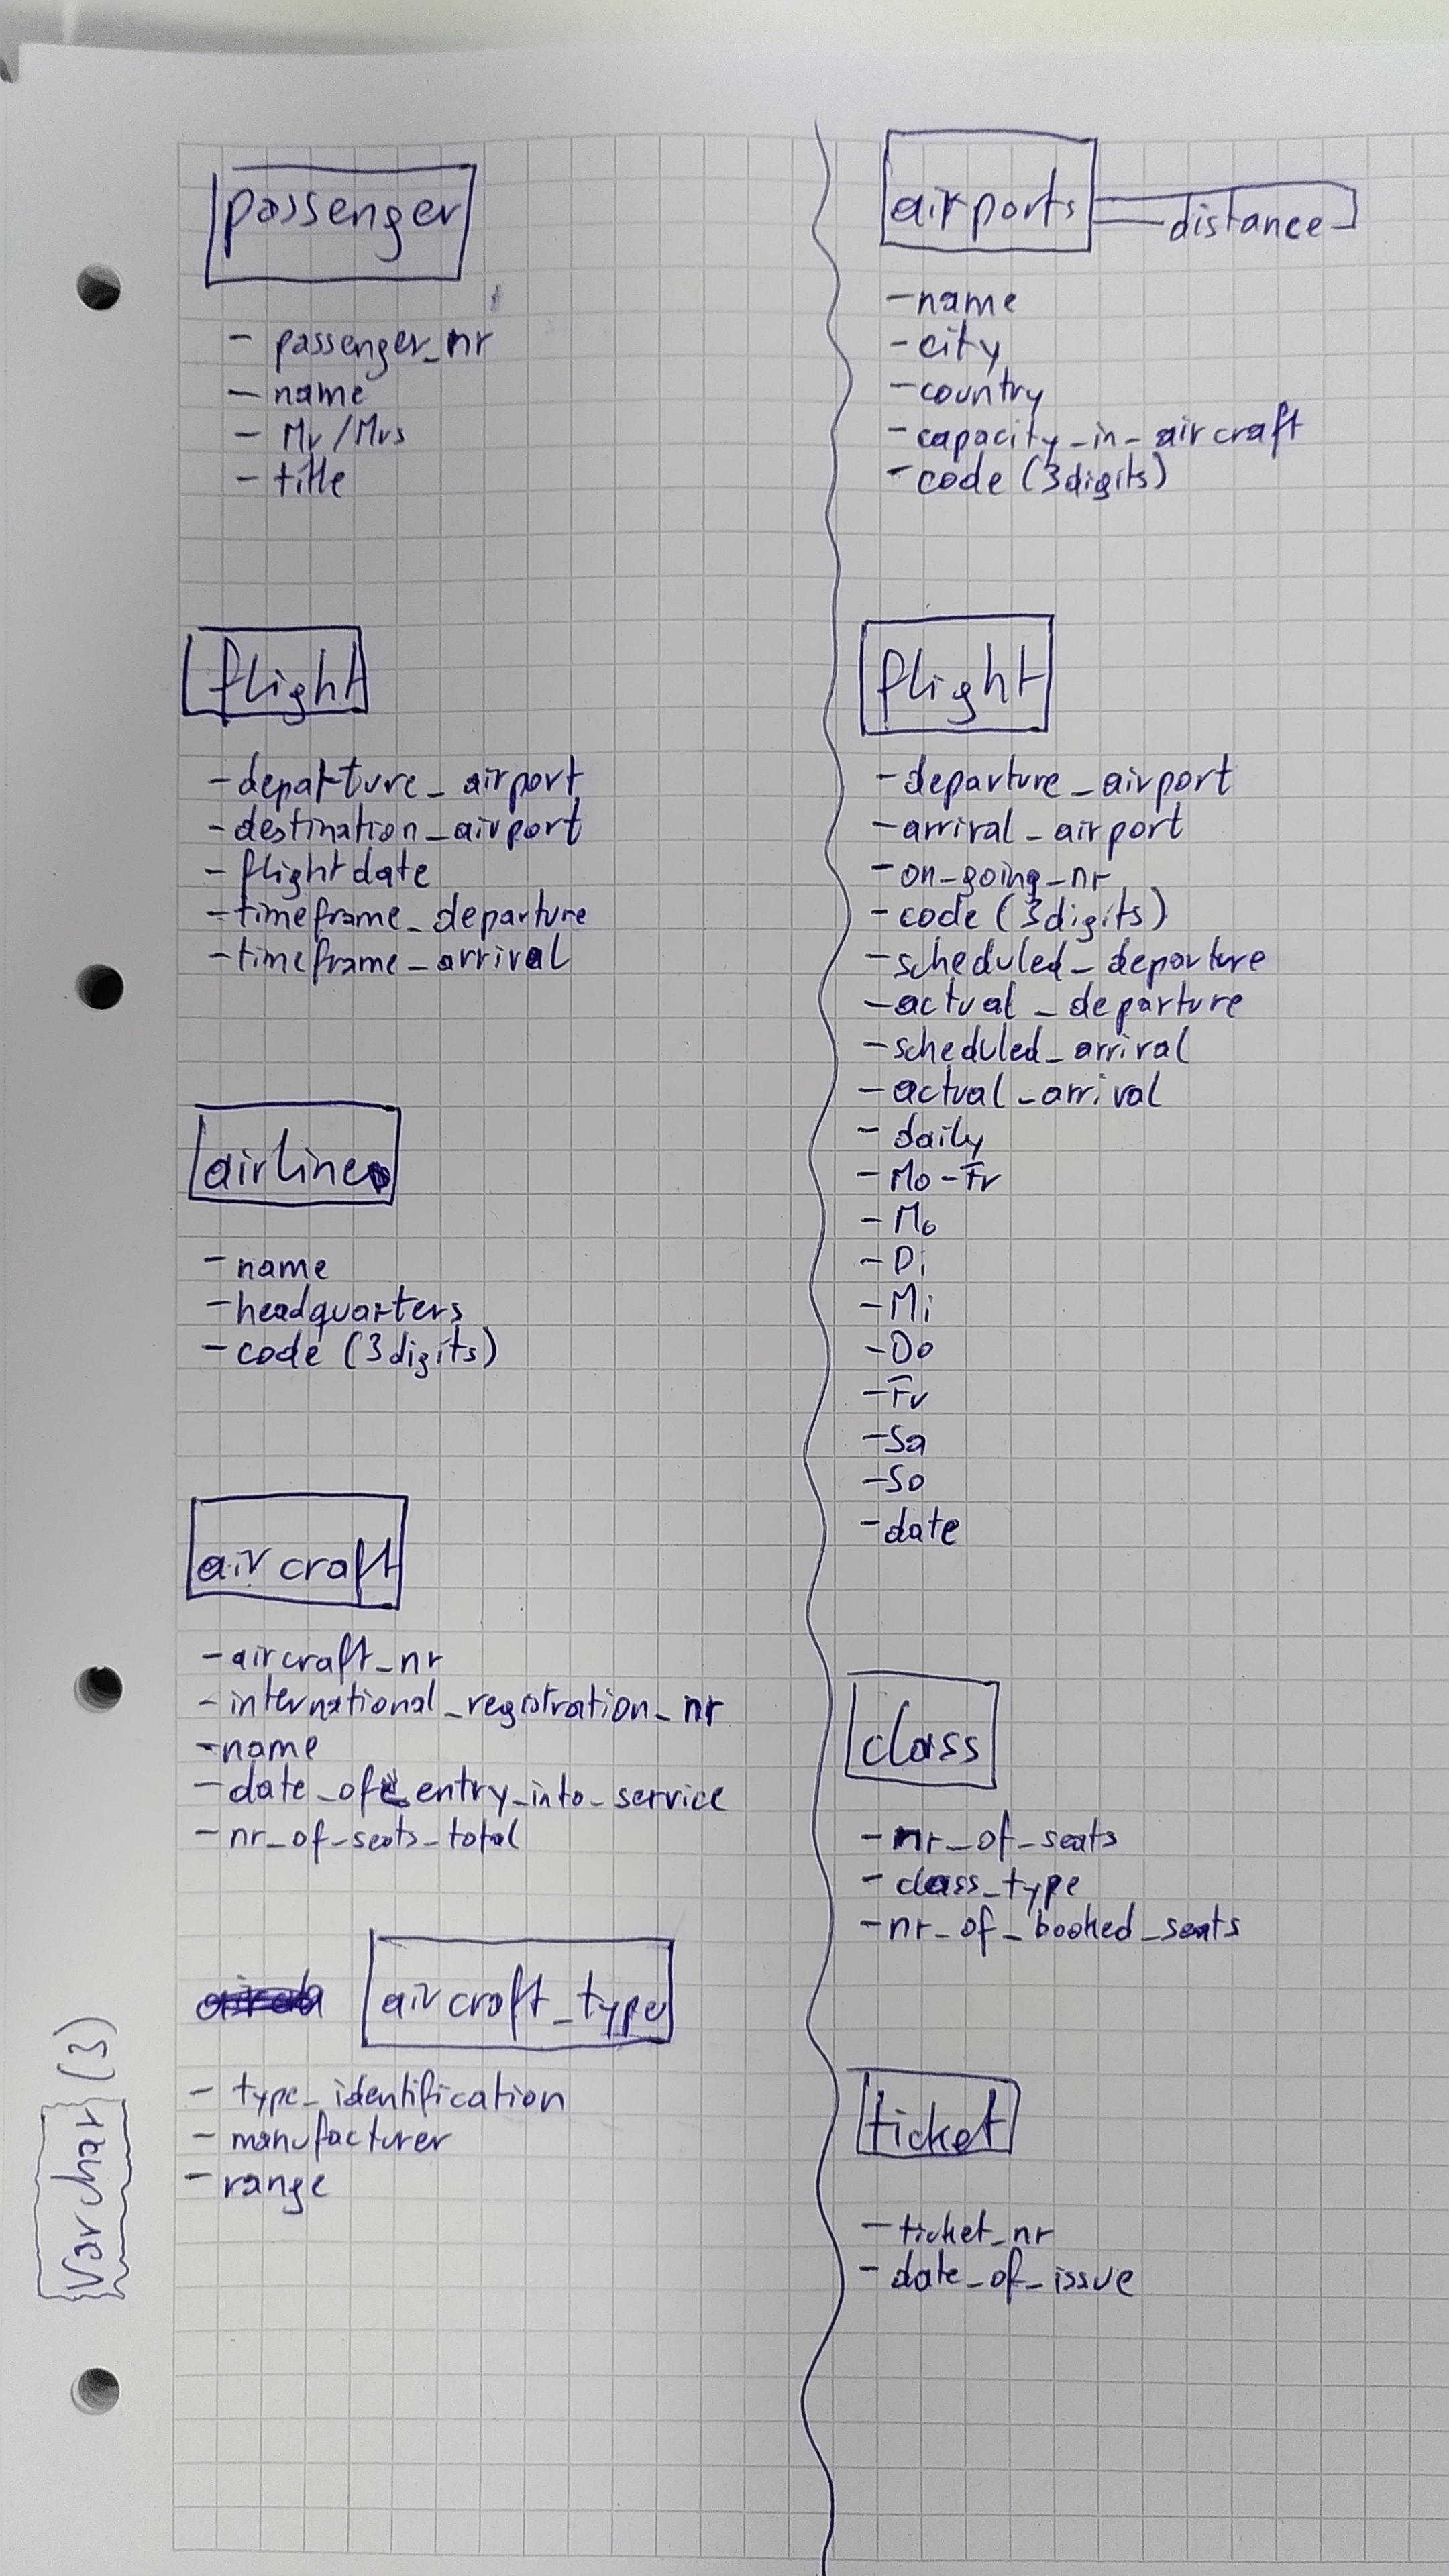 passenger
- passenger_nr
- name
- Mr/Mrs
- title
flight
- departure_airport
- destination_airport
- flightdate
- timeframe_departure
- timeframe_arrival
airline
- name
- headquarters
- code (3digits)
aircraft
- aircraft_nr
- international_registration_nr
- name
- date_of_entry_into_service
- nr_of_seats_total
aircraft_type
- type_identification
- manufacturer
- range
Varchar (3)
airports
distance
- name
- city
- country
- capacity_in_aircraft
- code (3digits)
flight
- departure_airport
- arrival_airport
- on_going_nr
- code (3digits)
- scheduled_departure
- actual_departure
- scheduled_arrival
- actual_arrival
- daily
- Mo-Fr
- Mo
- Di
- Mi
- Do
- Fr
- Sa
- So
- date
class
- nr_of_seats
- class_type
- nr_of_booked_seats
ticket
- ticket_nr
- date_of_issue